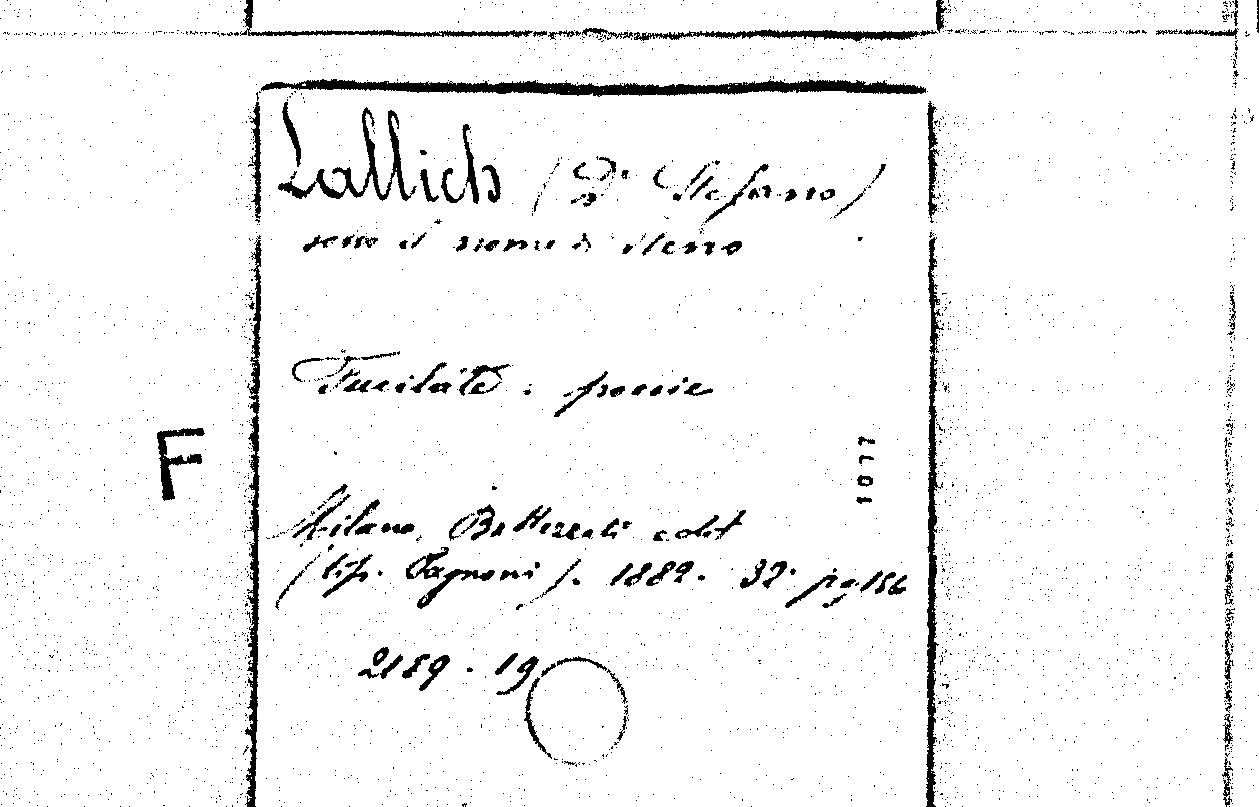 Lallich (Dr Stefano)
sotto il nome di Steno
Fucilate. poesie
F
1077
Milano, Battezzati edit
(tip. Pagnoni). 1882. 32° pag 156
2189 . 19